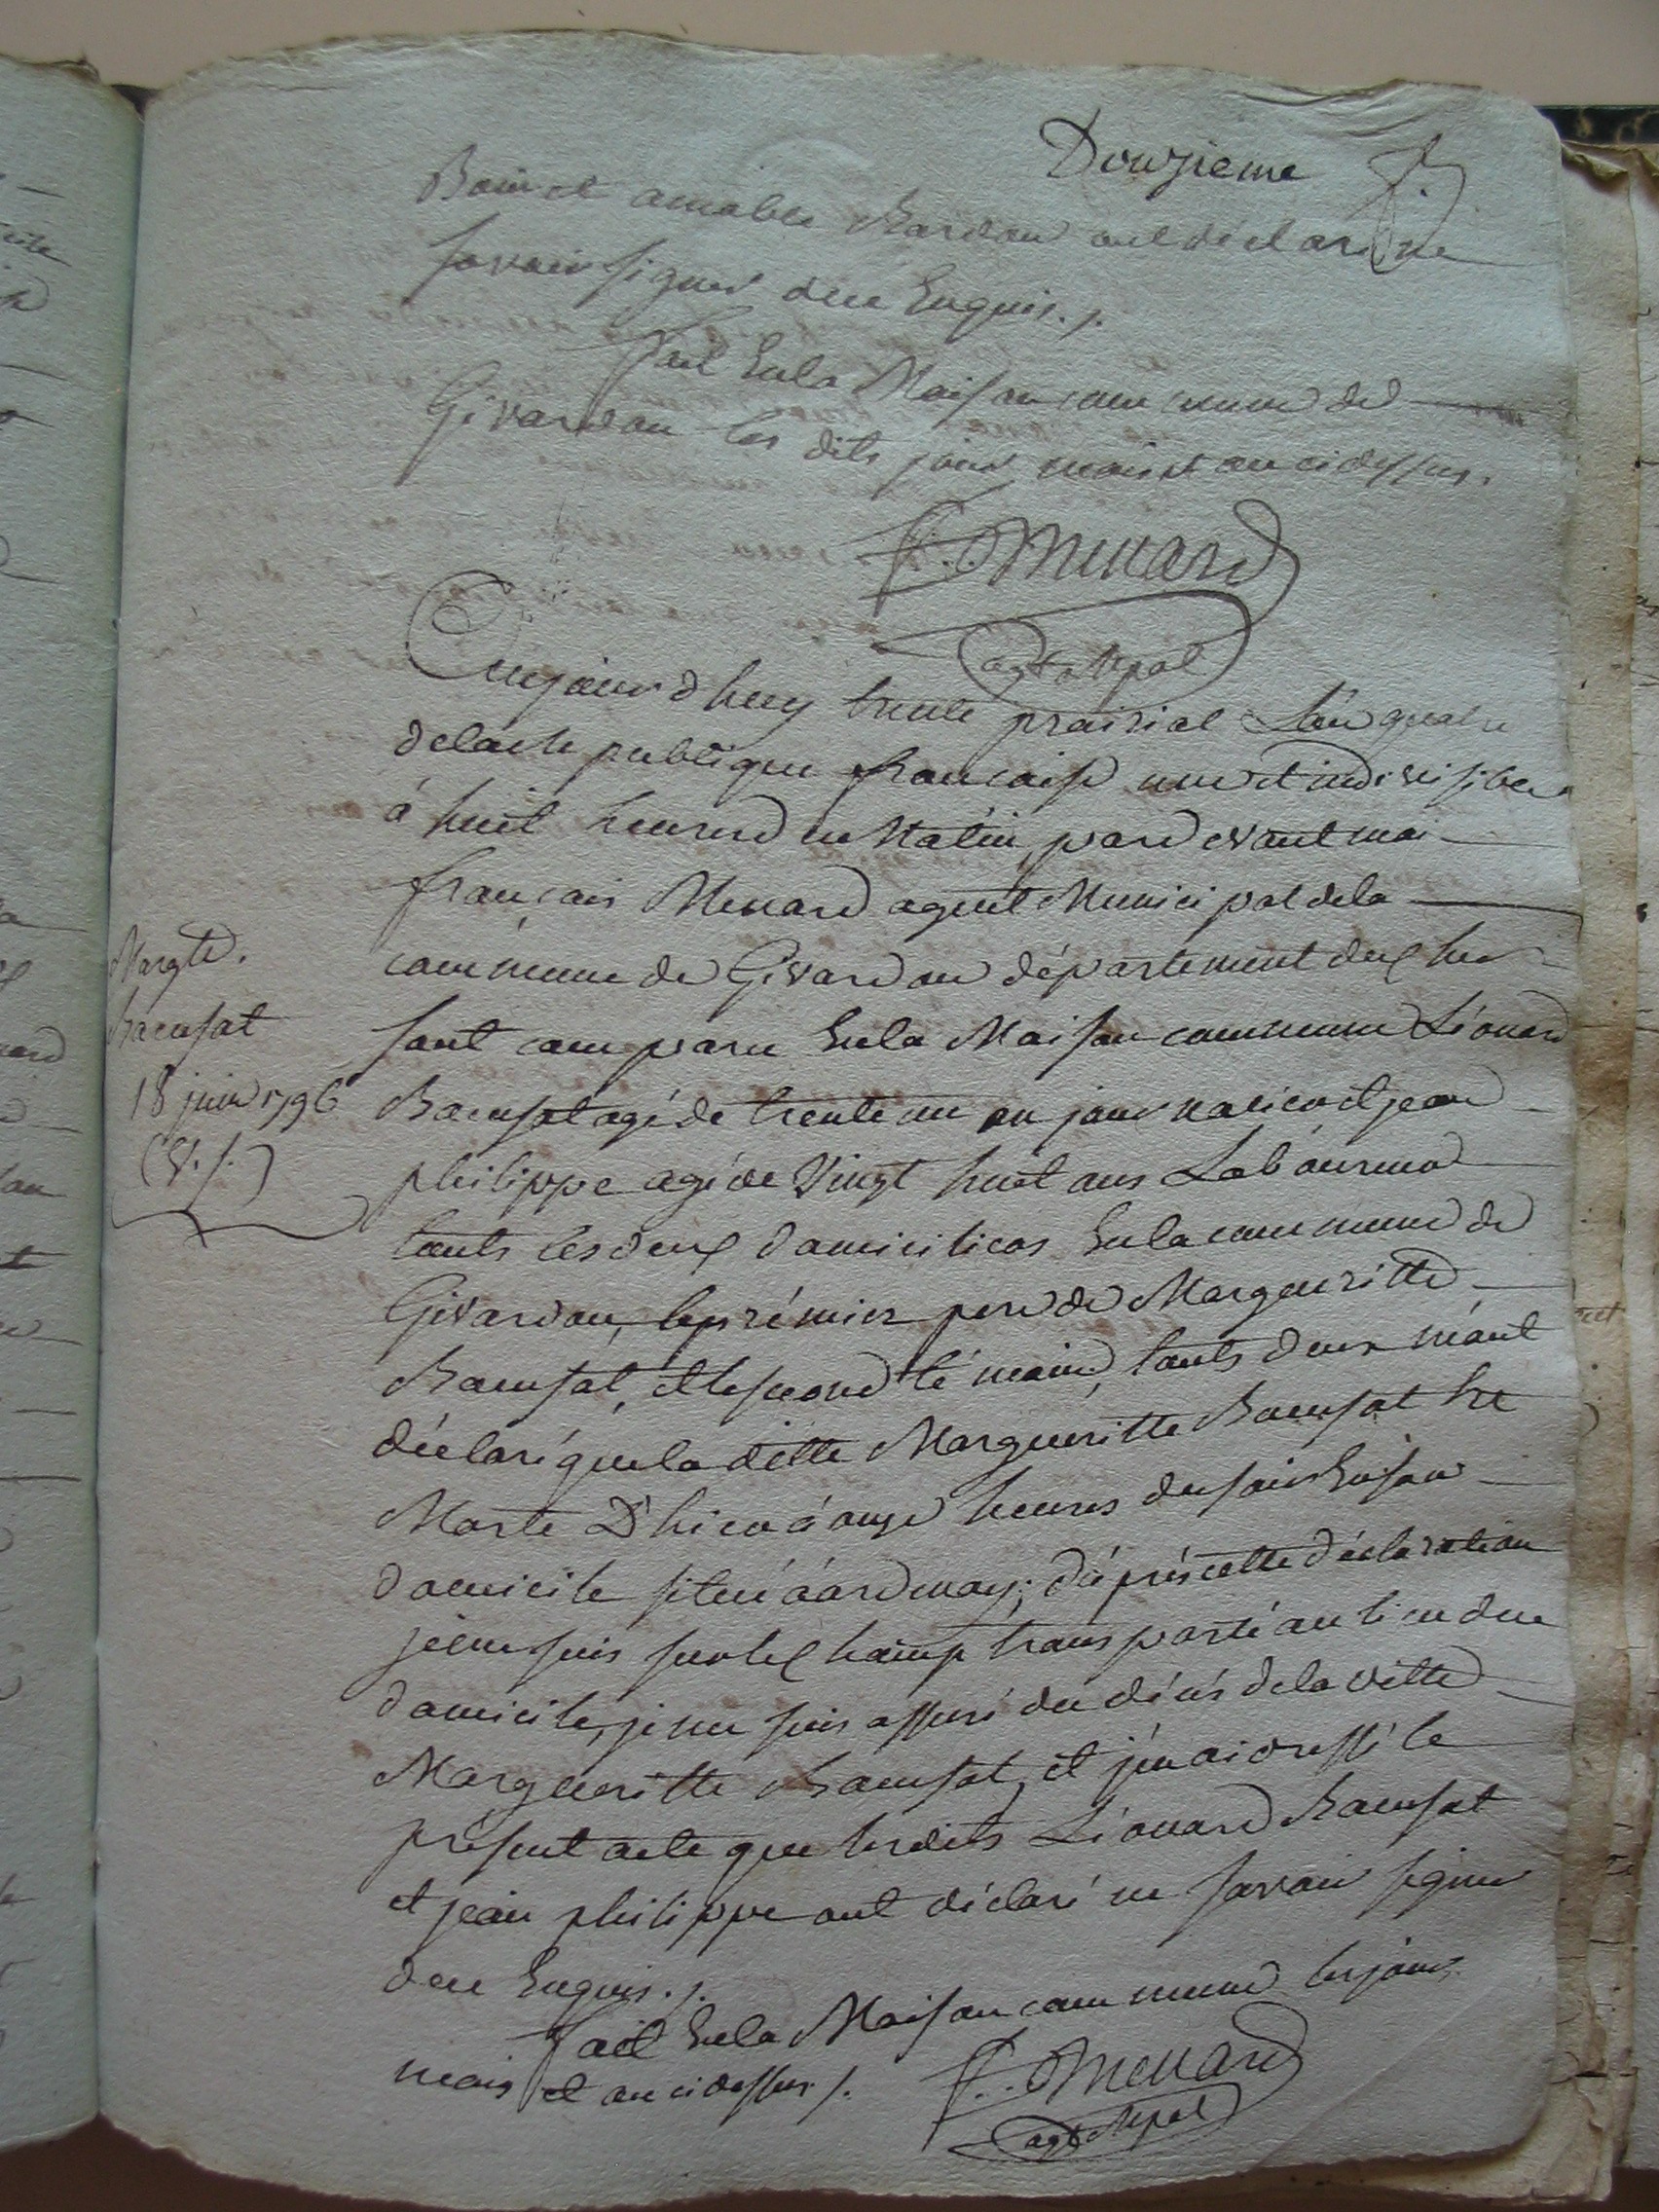 Douzieme
amable Bardou ont déclaré ne
savoir signer dece Enquis./.
fait Enla Maison commune de
Givardon les dits jour mois et an cidessus.
f. Menard
agt Mpal
Aujourd huy trente prairial L'an quatre
delaRepublique francaise une et indivisible
à huit heures du Matin, pardevant moi
francois Menard agent Municipal dela
commune de Givardon département du Cher
sont comparu Enla Maison commune Léonard
agé de trente un an journalier et jean
philippe agé de Vingt huit ans Laboureur
touts les deux domiciliers Enla commune de
Givardon, le prémier pere de Margueritte
et le second témoin, touts deux m'ont
déclaré que la ditte Margueritte
Morte D'hier à onze heures du soir En son
domicile situé à ardenay; d'après cette déclaration
je me suis sur le Champ transporté au lieu due
domicile, je me suis assuré du décés de la ditte
Margueritte et j'en ai dressé le
présent acte que les dits Léonard
et jean philippe ont déclaré ne savoir signer
dece Enquis./.
fait Enla Maison commune les jours
mois et an cidessus./.
f. Menard
agt Mpal
Margte.
18 juin 1796
(v.s.)